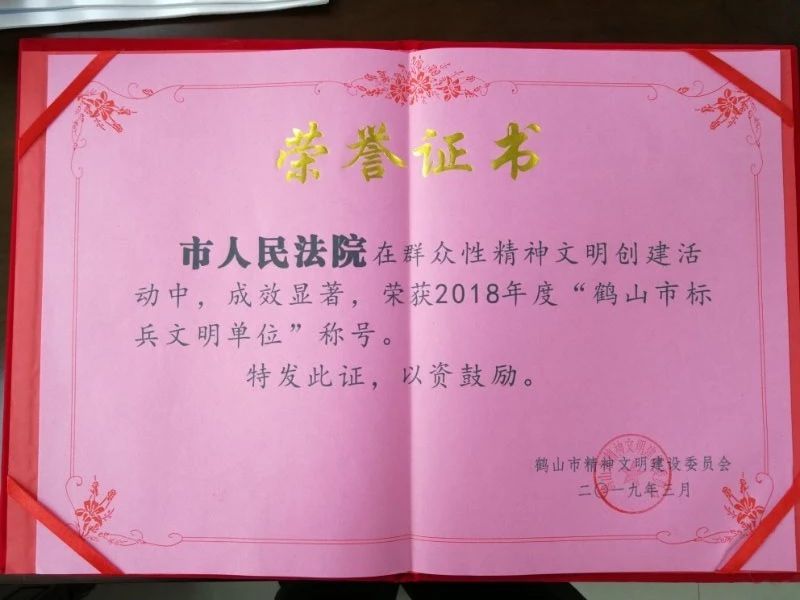 荣誉证书
市人民法院在群众性精神文明创建活
动中，成效显著，荣获2018年度“鹤山市标
兵文明单位”称号。
特发此证，以资鼓励。
鹤山市精神文明建设委员会
二〇一九年三月